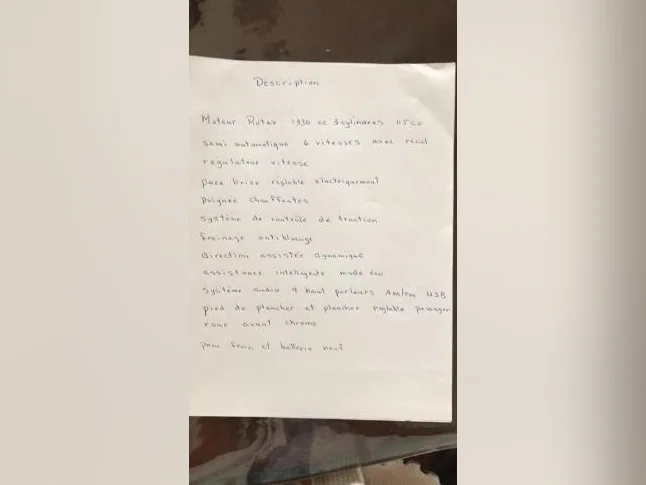 Description
Moteur Rotax 1330 cc 3 cylindres 115 cv
semi automatique 6 vitesses avec recul
regulateur vitesse
pare brise réglable electriquement
poignée chauffantes
système de contrôle de traction
freinage antiblocage
direction assistée dynamique
assistance intelligente mode éco
système audio 4 haut parleurs Am/Fm USB
pied de plancher et plancher réglable passager
roue avant chrome
et batterie neuf